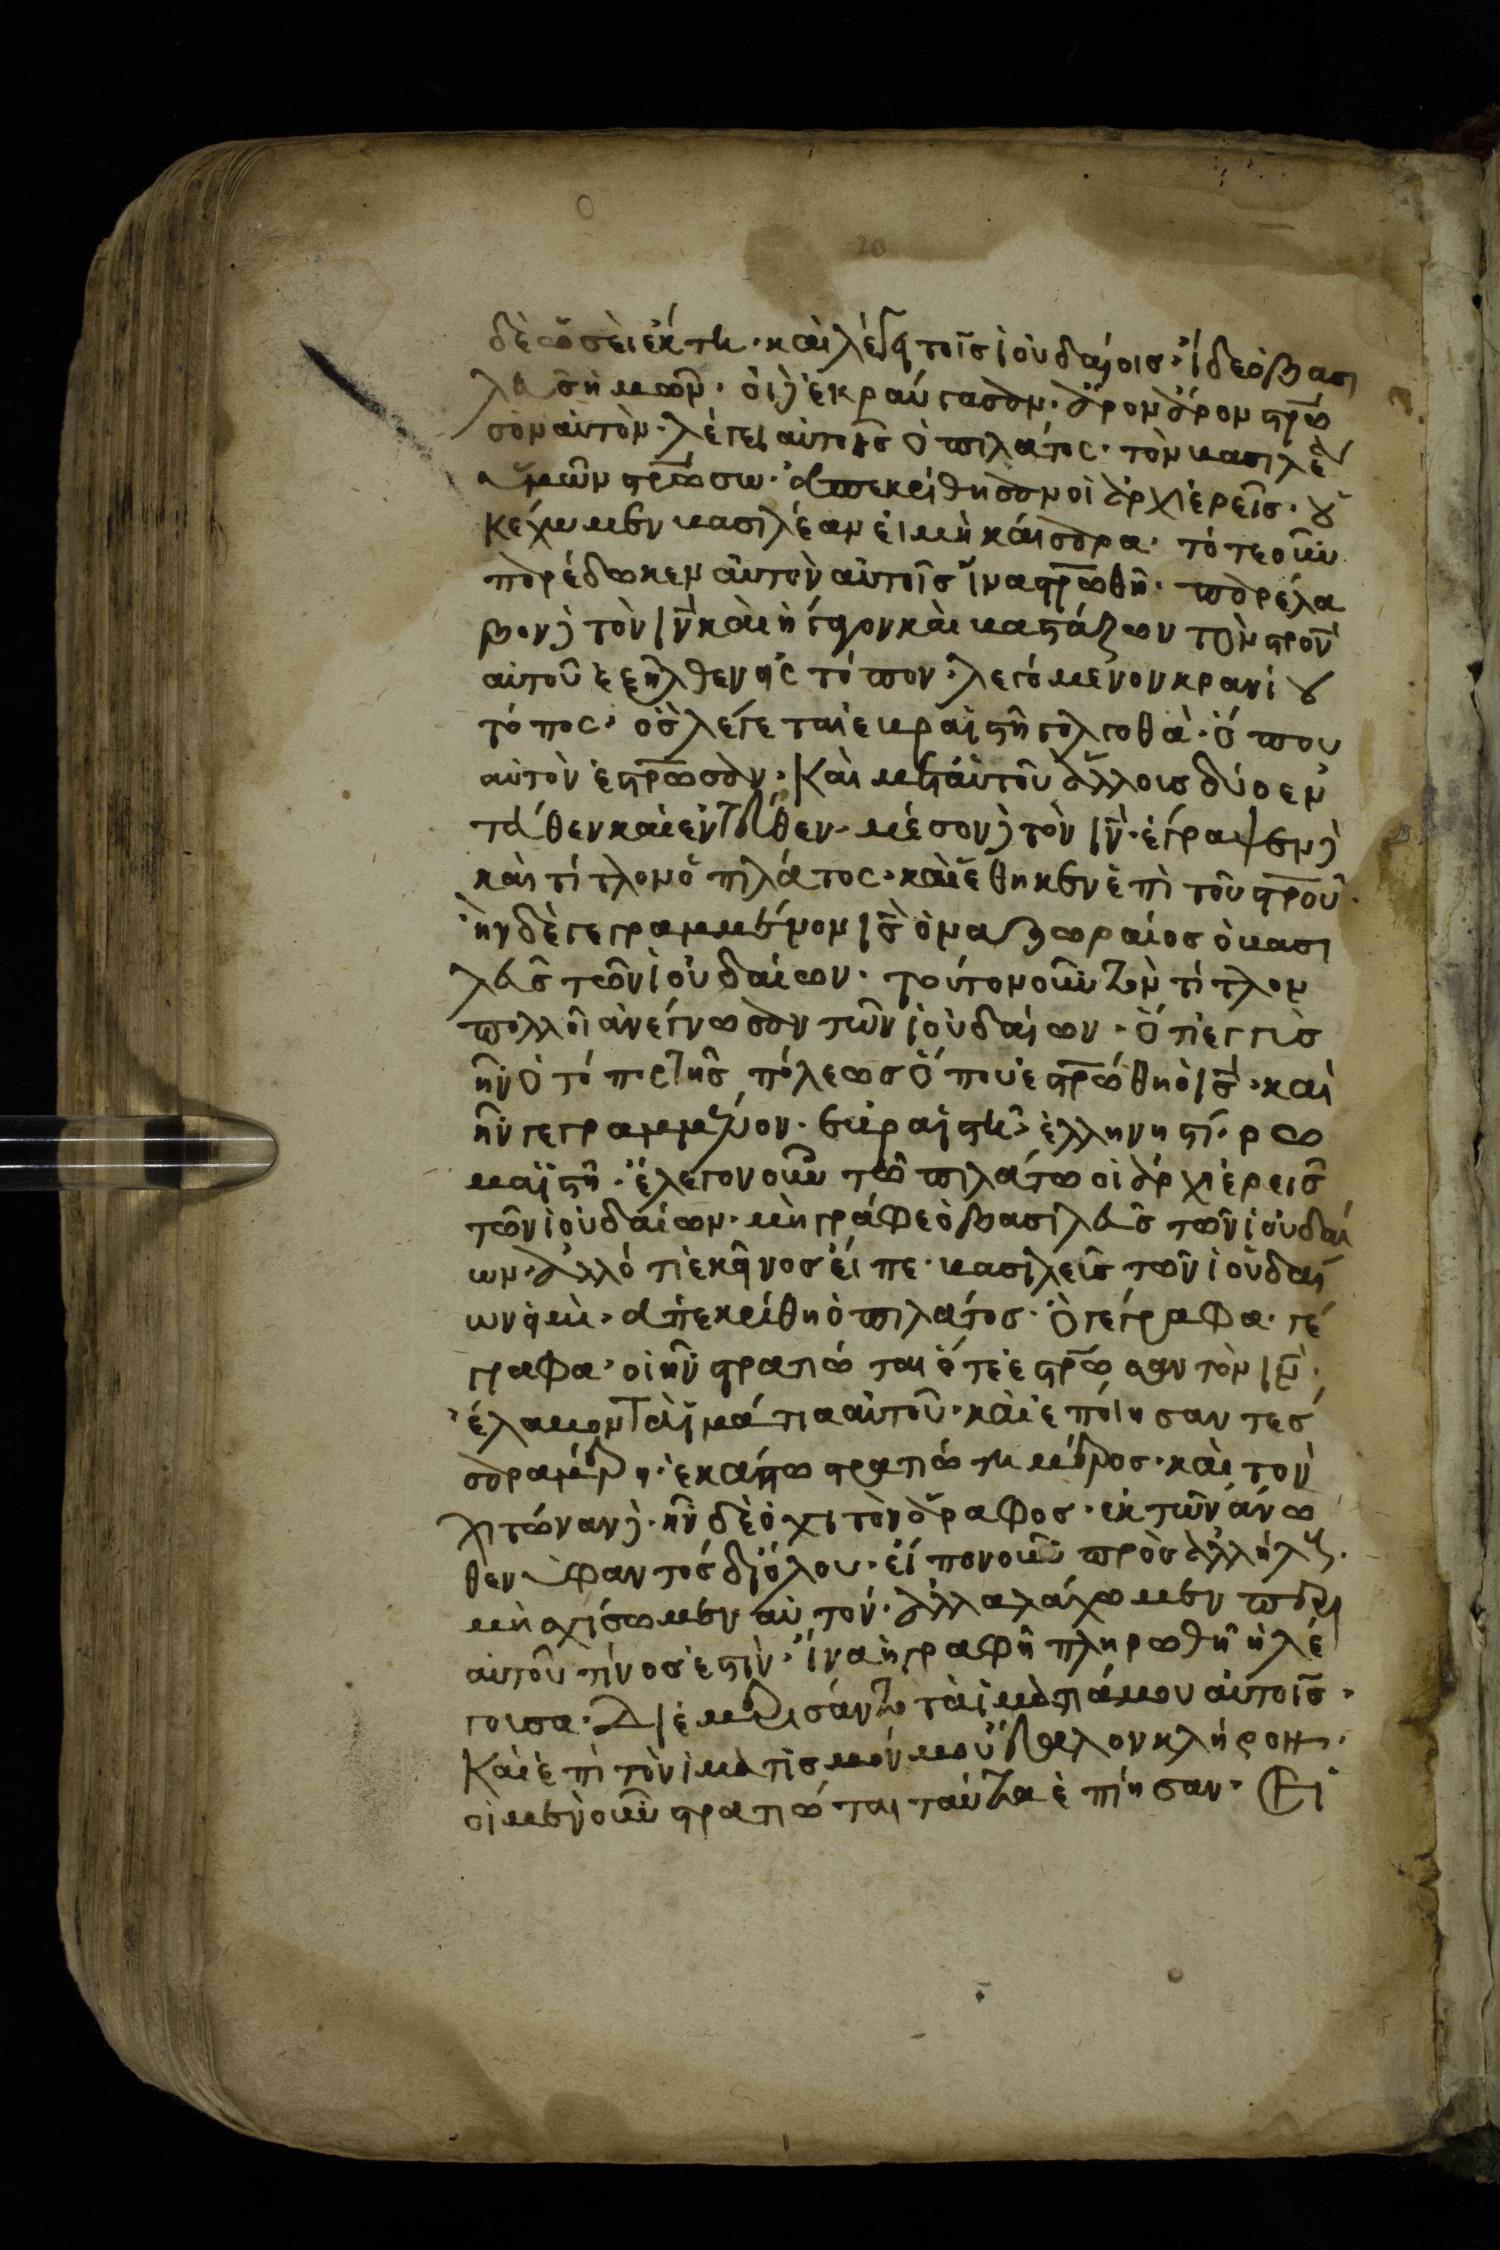 δὲ ὡσεὶ ἕκτη· καὶ λέγει τοῖς ἰουδαίοις· ἴδε ὁ βασι
λεῦς ἡμῶν· οἱ δὲ ἐκραύγασαν· ἆρον ἆρον σταύρω
σον αὐτὸν· λέγει αὐτοῖς ὁ πιλάτος· τὸν βασιλέα
ὑμῶν σταυρώσω· ἀπεκρίθησαν οἱ ἀρχιερεῖς· οὐ
κ ἔχωμεν βασιλέαν εἰ μὴ καίσαρα· τότε οὖν
παρέδωκεν αὐτὸν αὐτοῖς ἵνα σταυρωθῆ· παρέλα
βον δὲ τὸν ιν καὶ ἤγαγον καὶ βαστάζων τὸν στρον
αὐτοῦ ἐξῆλθεν εἰς τόπον· λεγόμενον κρανίου
τόπος· ὃς λέγεται ἑβραϊστῆ γολγοθὰ· ὅπου
αὐτὸν ἐστρωσαν· Καὶ μετ αὐτοῦ ἄλλοις δύο ἐν
τεύθεν καὶ ἐντεύθεν· μέσον δὲ τὸν ιν· ἔγραψεν δὲ
καὶ τίτλον ὁ πιλάτος· καὶ ἔθηκεν ἐπὶ τοῦ στροῦ·
ἦν δὲ γεγραμμένον ις ὁ ναζωραίος ὁ βασι
λεῦς τῶν ἰουδαίων· τούτον οὖν τὸν τίτλον
πολλοὶ ἀνέγνωσαν τῶν ἰουδαίων· ὅτι ἐγγὺς
ἦν ὁ τόπος τῆς πόλεως ὅπου ἐστρώθη ὁ ις· καὶ
ἦν γεγραμμένον· ἑβραϊστῆ· ἑλληνηστί· ρω
μαϊστῆ· ἔλεγον οὖν τῶ πιλάτω οἱ ἀρχιέρεις
τῶν ἰουδαίων· μὴ γράφε ὁ βασιλεῦς τῶν ἰουδαί
ων· ἀλλ ὅτι ἐκεῖνος εἶπε· βασιλεῖς τῶν ἰουδαί
ων εἰμὶ· ἀπεκρίθη ὁ πιλάτος· ὃ γέγραφα· γέ
γραφα· οἱ ἦν στρατιώται ὅτε ἐστρωσαν τὸν ιν·
ἔλαβον τὰ ἱμάτια αὐτοῦ· καὶ ἐποίησαν τέσ
σαρα μέρη· ἑκάστω στρατιώτη μέρος· καὶ τὸν
χιτώναν δὲ· ἦν δὲ ὁ χιτὸν ἄραφος· ἐκ τῶν ἄνω
θεν ὑφαντός δι ὅλου· εἶπον οὖν πρὸς ἀλλήλους·
μὴ σχίσωμεν αὐτόν· ἀλλα λάχωμεν περὶ
αὐτοῦ τίνος ἐστὶν· ἵνα ἡ γραφῆ πληρωθῆ ἡ λέ
γουσα· Διεμερισάντο τὰ ἱμάτιά μου αὐτοῖς·
Καὶ ἐπὶ τὸν ἱματισμόν μου ἔβαλον κλήρον·
οἱ μὲν οὖν στρατιώται ταύτα ἐπίησαν· Εἱ